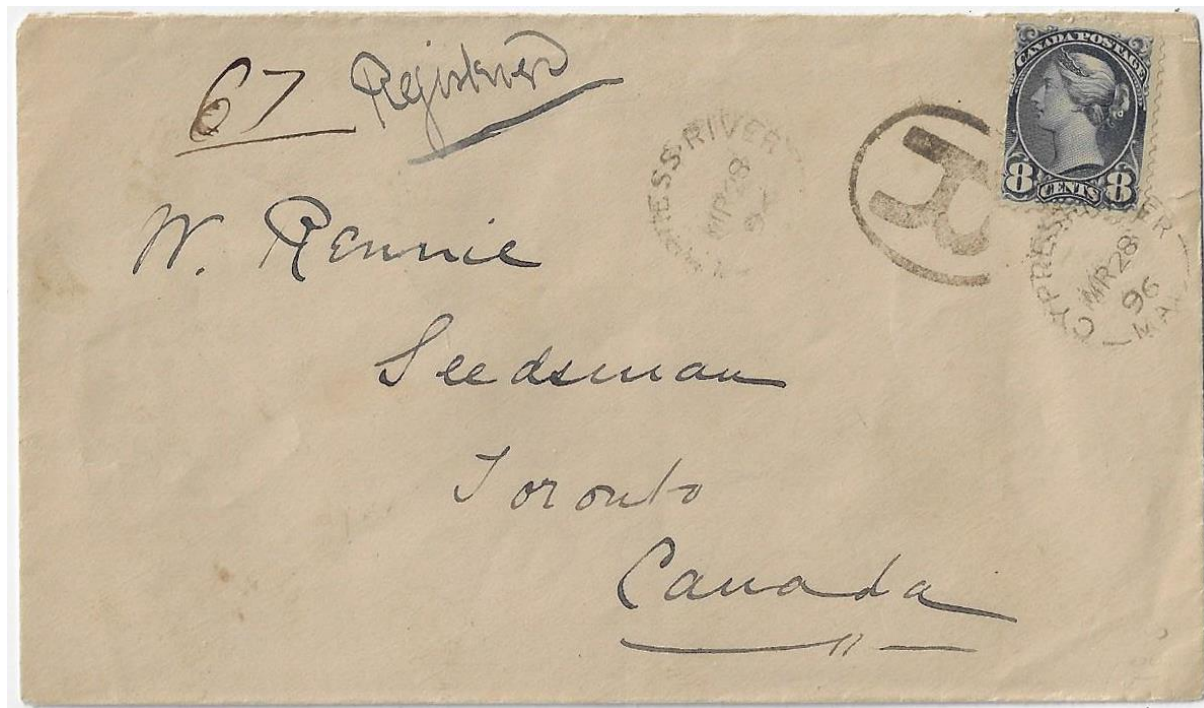 67 Registered
CANADA POSTAGE
8 CENTS 8
PRESS RIVER
MR 28
R
CYPRESS RIVER
MR 28
96
MA
W. Rennie
Seedsman
Toronto
Canada